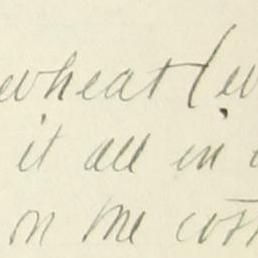 wheat (
it all in
on the cost